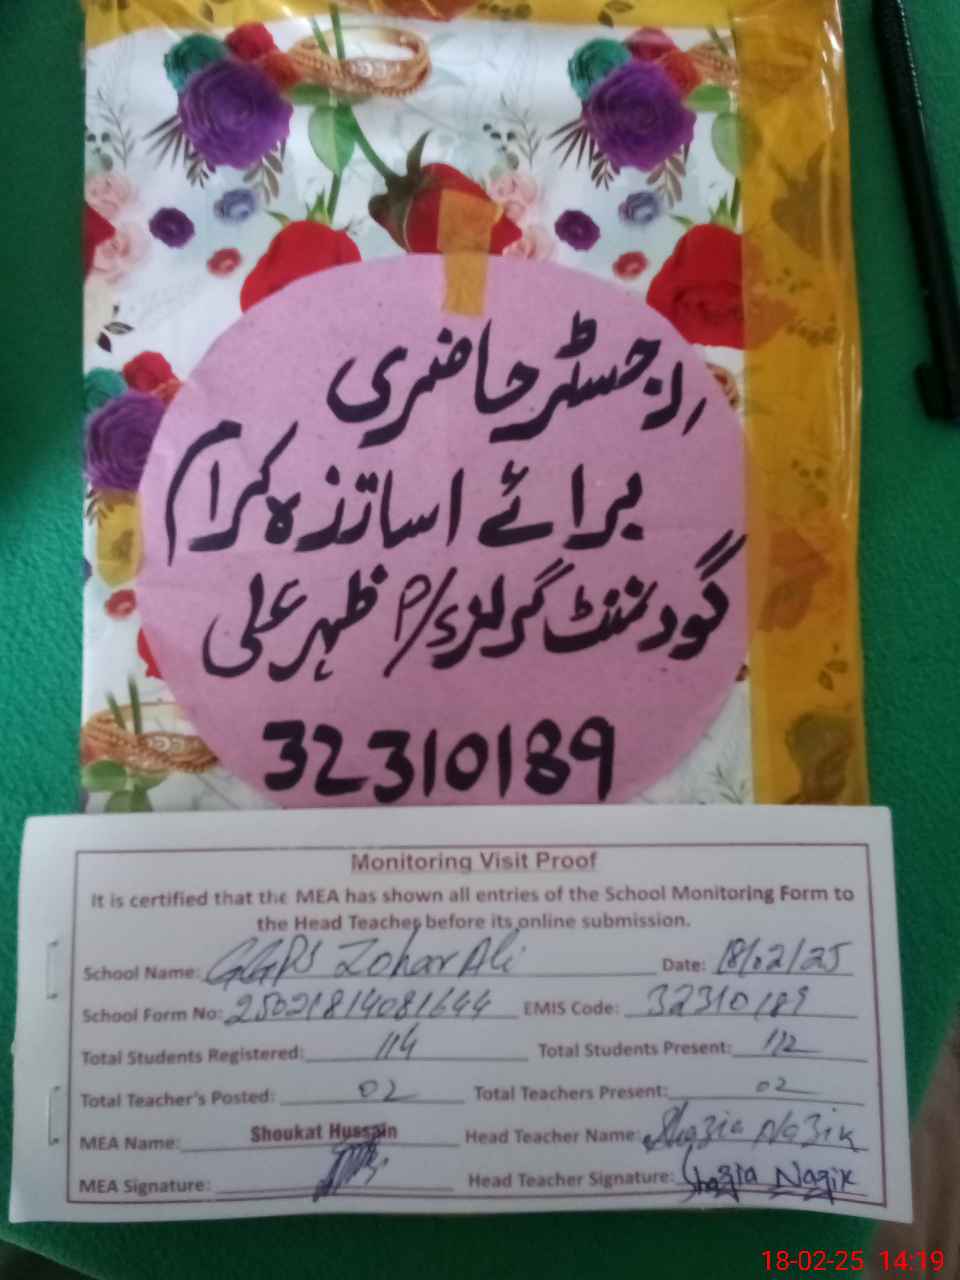 رجسٹر حاضری
برائے اساتذہ کرام
گورنمنٹ گرلز P/S ظہر علی
32310189
Monitoring Visit Proof
It is certified that the MEA has shown all entries of the School Monitoring Form to
the Head Teacher before its online submission.
School Name: GGPS Zohar Ali Date: 18/02/25
School Form No: 25021814081644 EMIS Code: 32310189
Total Students Registered: 114 Total Students Present: 112
Total Teacher's Posted: 02 Total Teachers Present: 02
MEA Name: Shoukat Hussain Head Teacher Name: Shazia Nazik
MEA Signature: Head Teacher Signature: Shazia Nazik
18-02-25 14:19